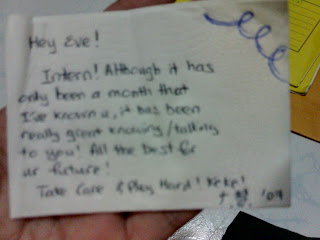 Hey Eve!
Intern! Although it has
only been a month that
I've known u, it has been
really great knowing/talking
to you! All the best for
ur future!
Take Care & Play Hard! Keke!
'07